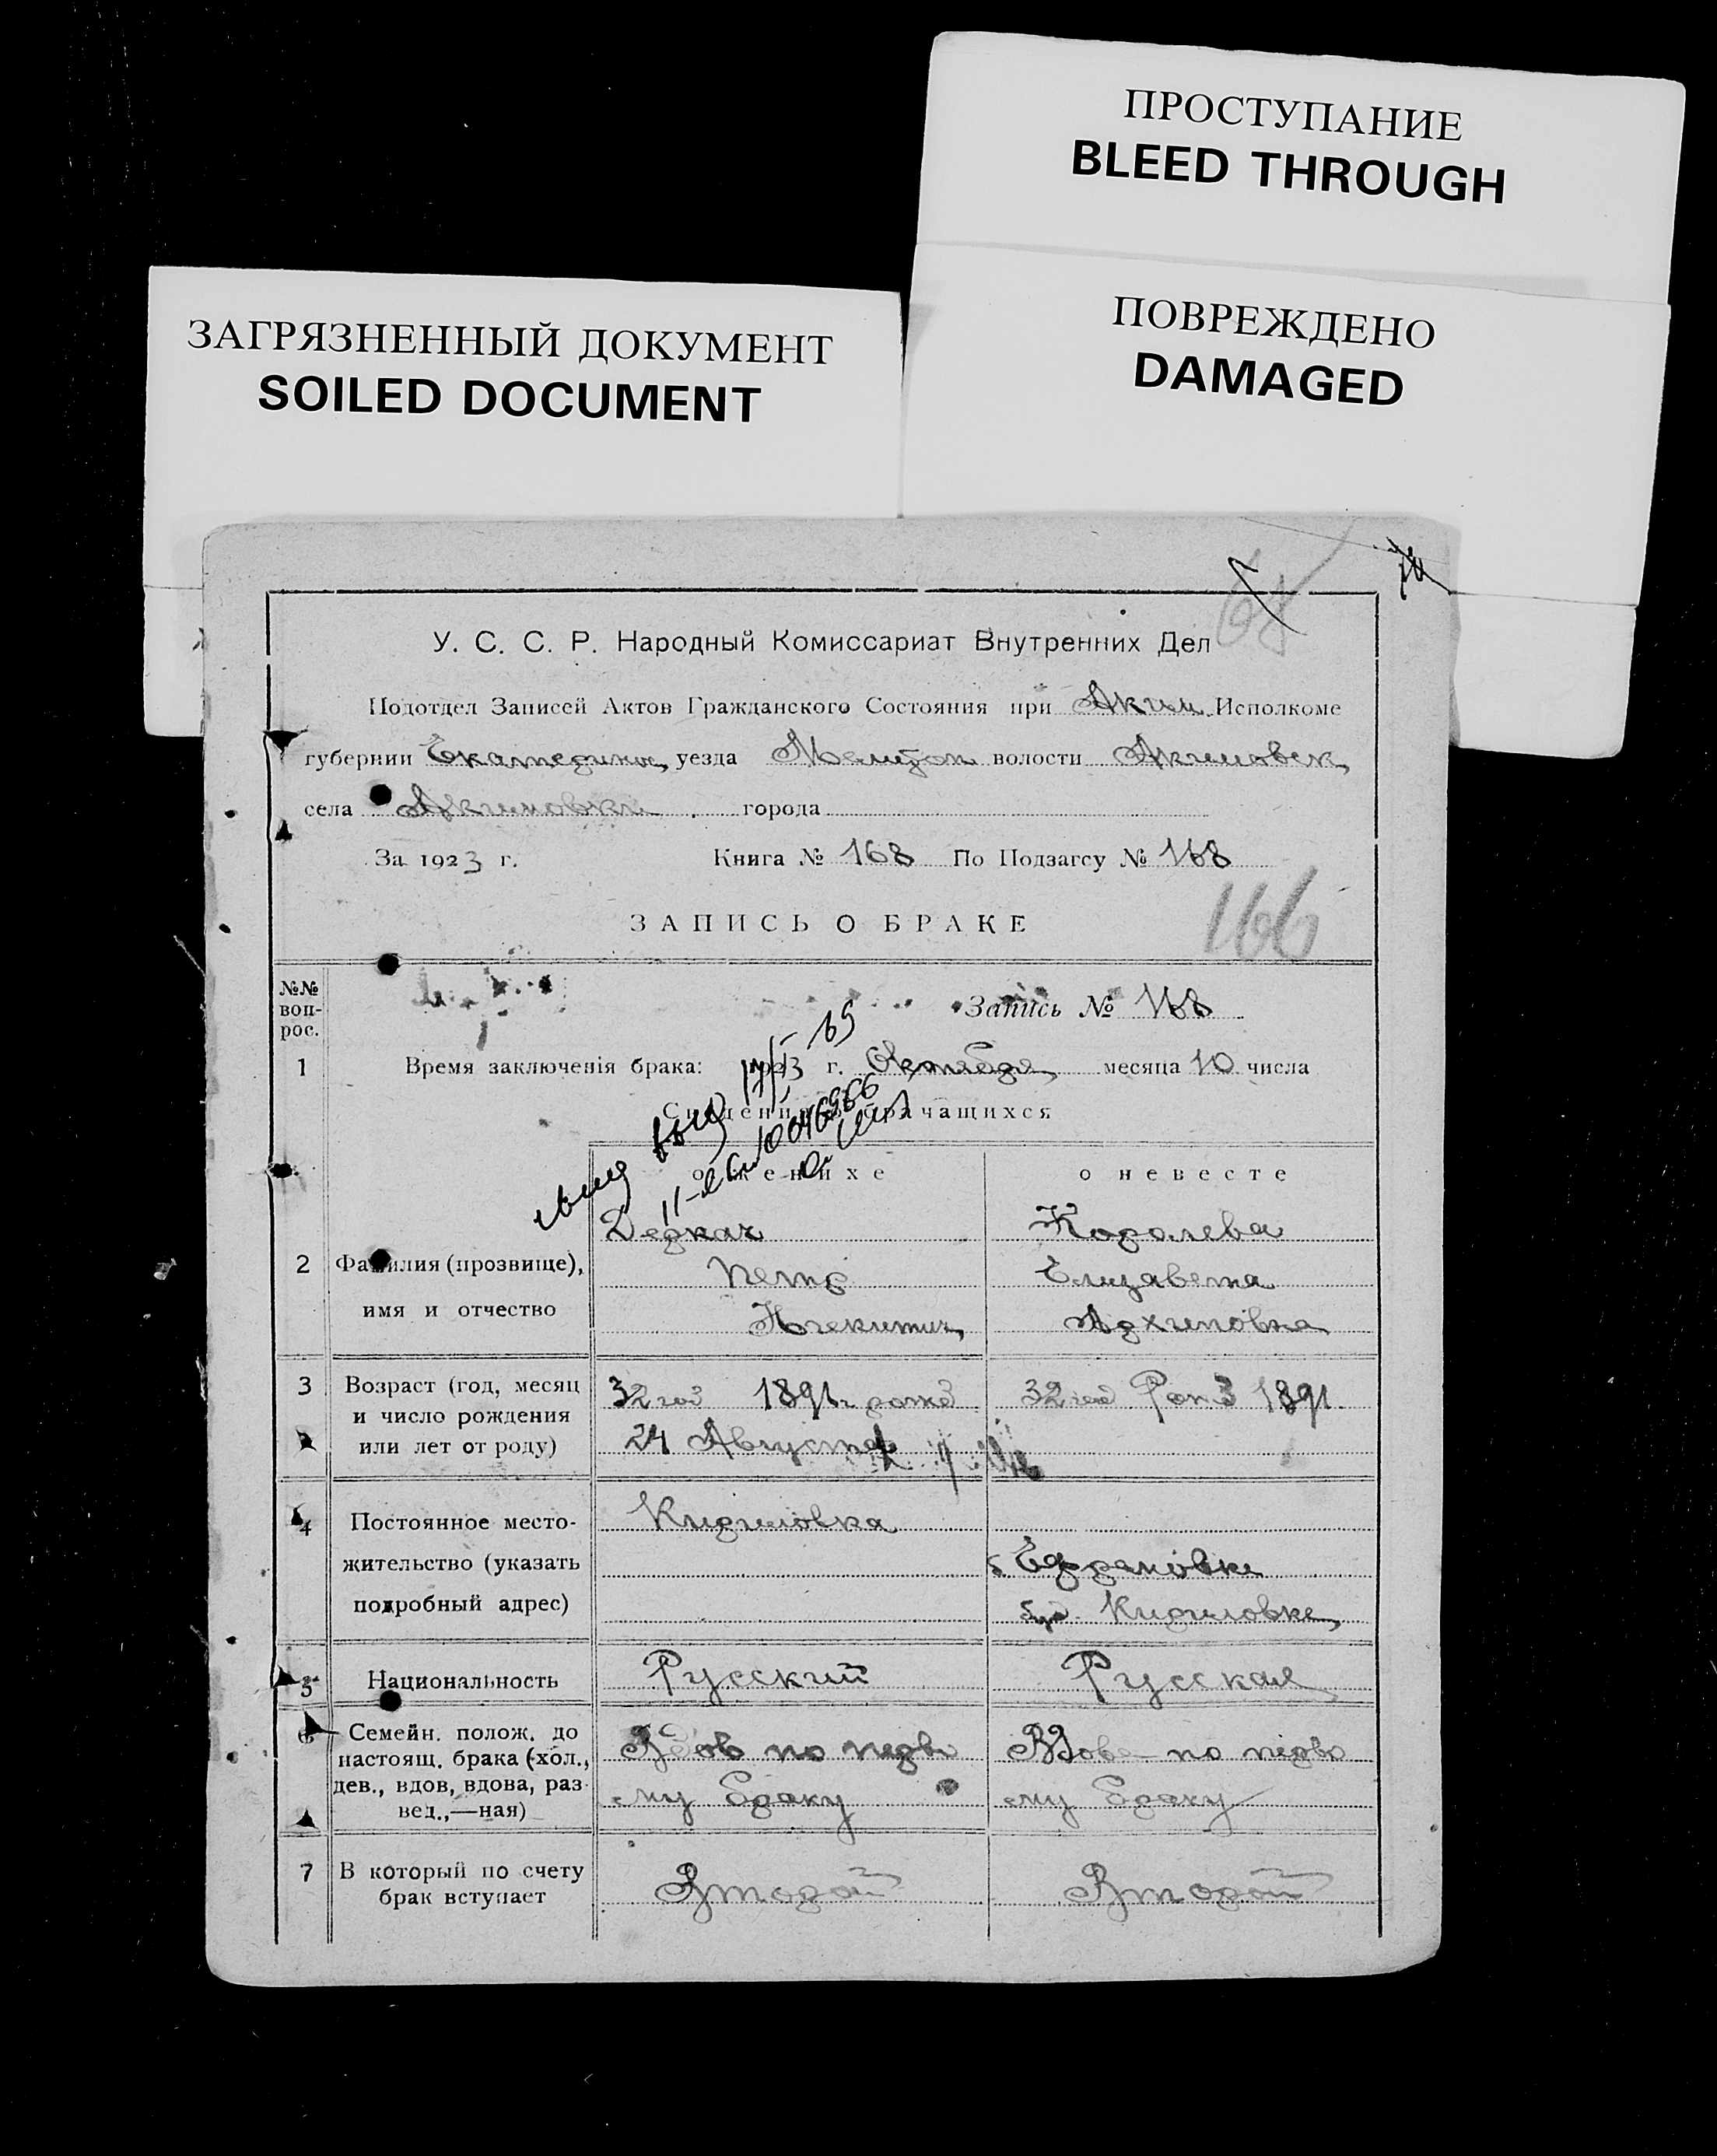 ПРОСТУПАНИЕ
BLEED THROUGH
ПОВРЕЖДЕНО
DAMAGED
ЗАГРЯЗНЕННЫЙ ДОКУМЕНТ
SOILED DOCUMENT
68
У. С. С. Р. Народный Комиссариат Внутренних Дел
Подотдел Записей Актов Гражданского Состояния при Аким. Исполкоме
губернии Екатерино, уезда Мелитоп волости Акимовск,
села Акимовки города
За 1923 г. Книга № 168 По Подзагсу № 168
ЗАПИСЬ О БРАКЕ
166
№№ воп- рос.
Запись № 168
1 Время заключенія брака: 1923 г. Октября месяца 10 числа
Сведения о брачащихся
о женихе о невесте
Деркач Королева
2 Фамилия (прозвище), Петр Елизавета
имя и отчество Никитич, Архиповна
3 Возраст (год, месяц 32 год 1891 г. рожд 32 год Рож 1891.
и число рождения
или лет от роду) 24 Августа
4 Постоянное место- Кириловка
жительство (указать с. Ефремовке
подробный адрес) Кириловке,
5 Национальность Русский Русская
6 Семейн. полож. до
настоящ. брака (хол., Вдов по перво Вдова по перво
дев., вдов, вдова, раз-
вед.,—ная) му браку ему браку
7 В который по счету
брак вступает Второй Второй